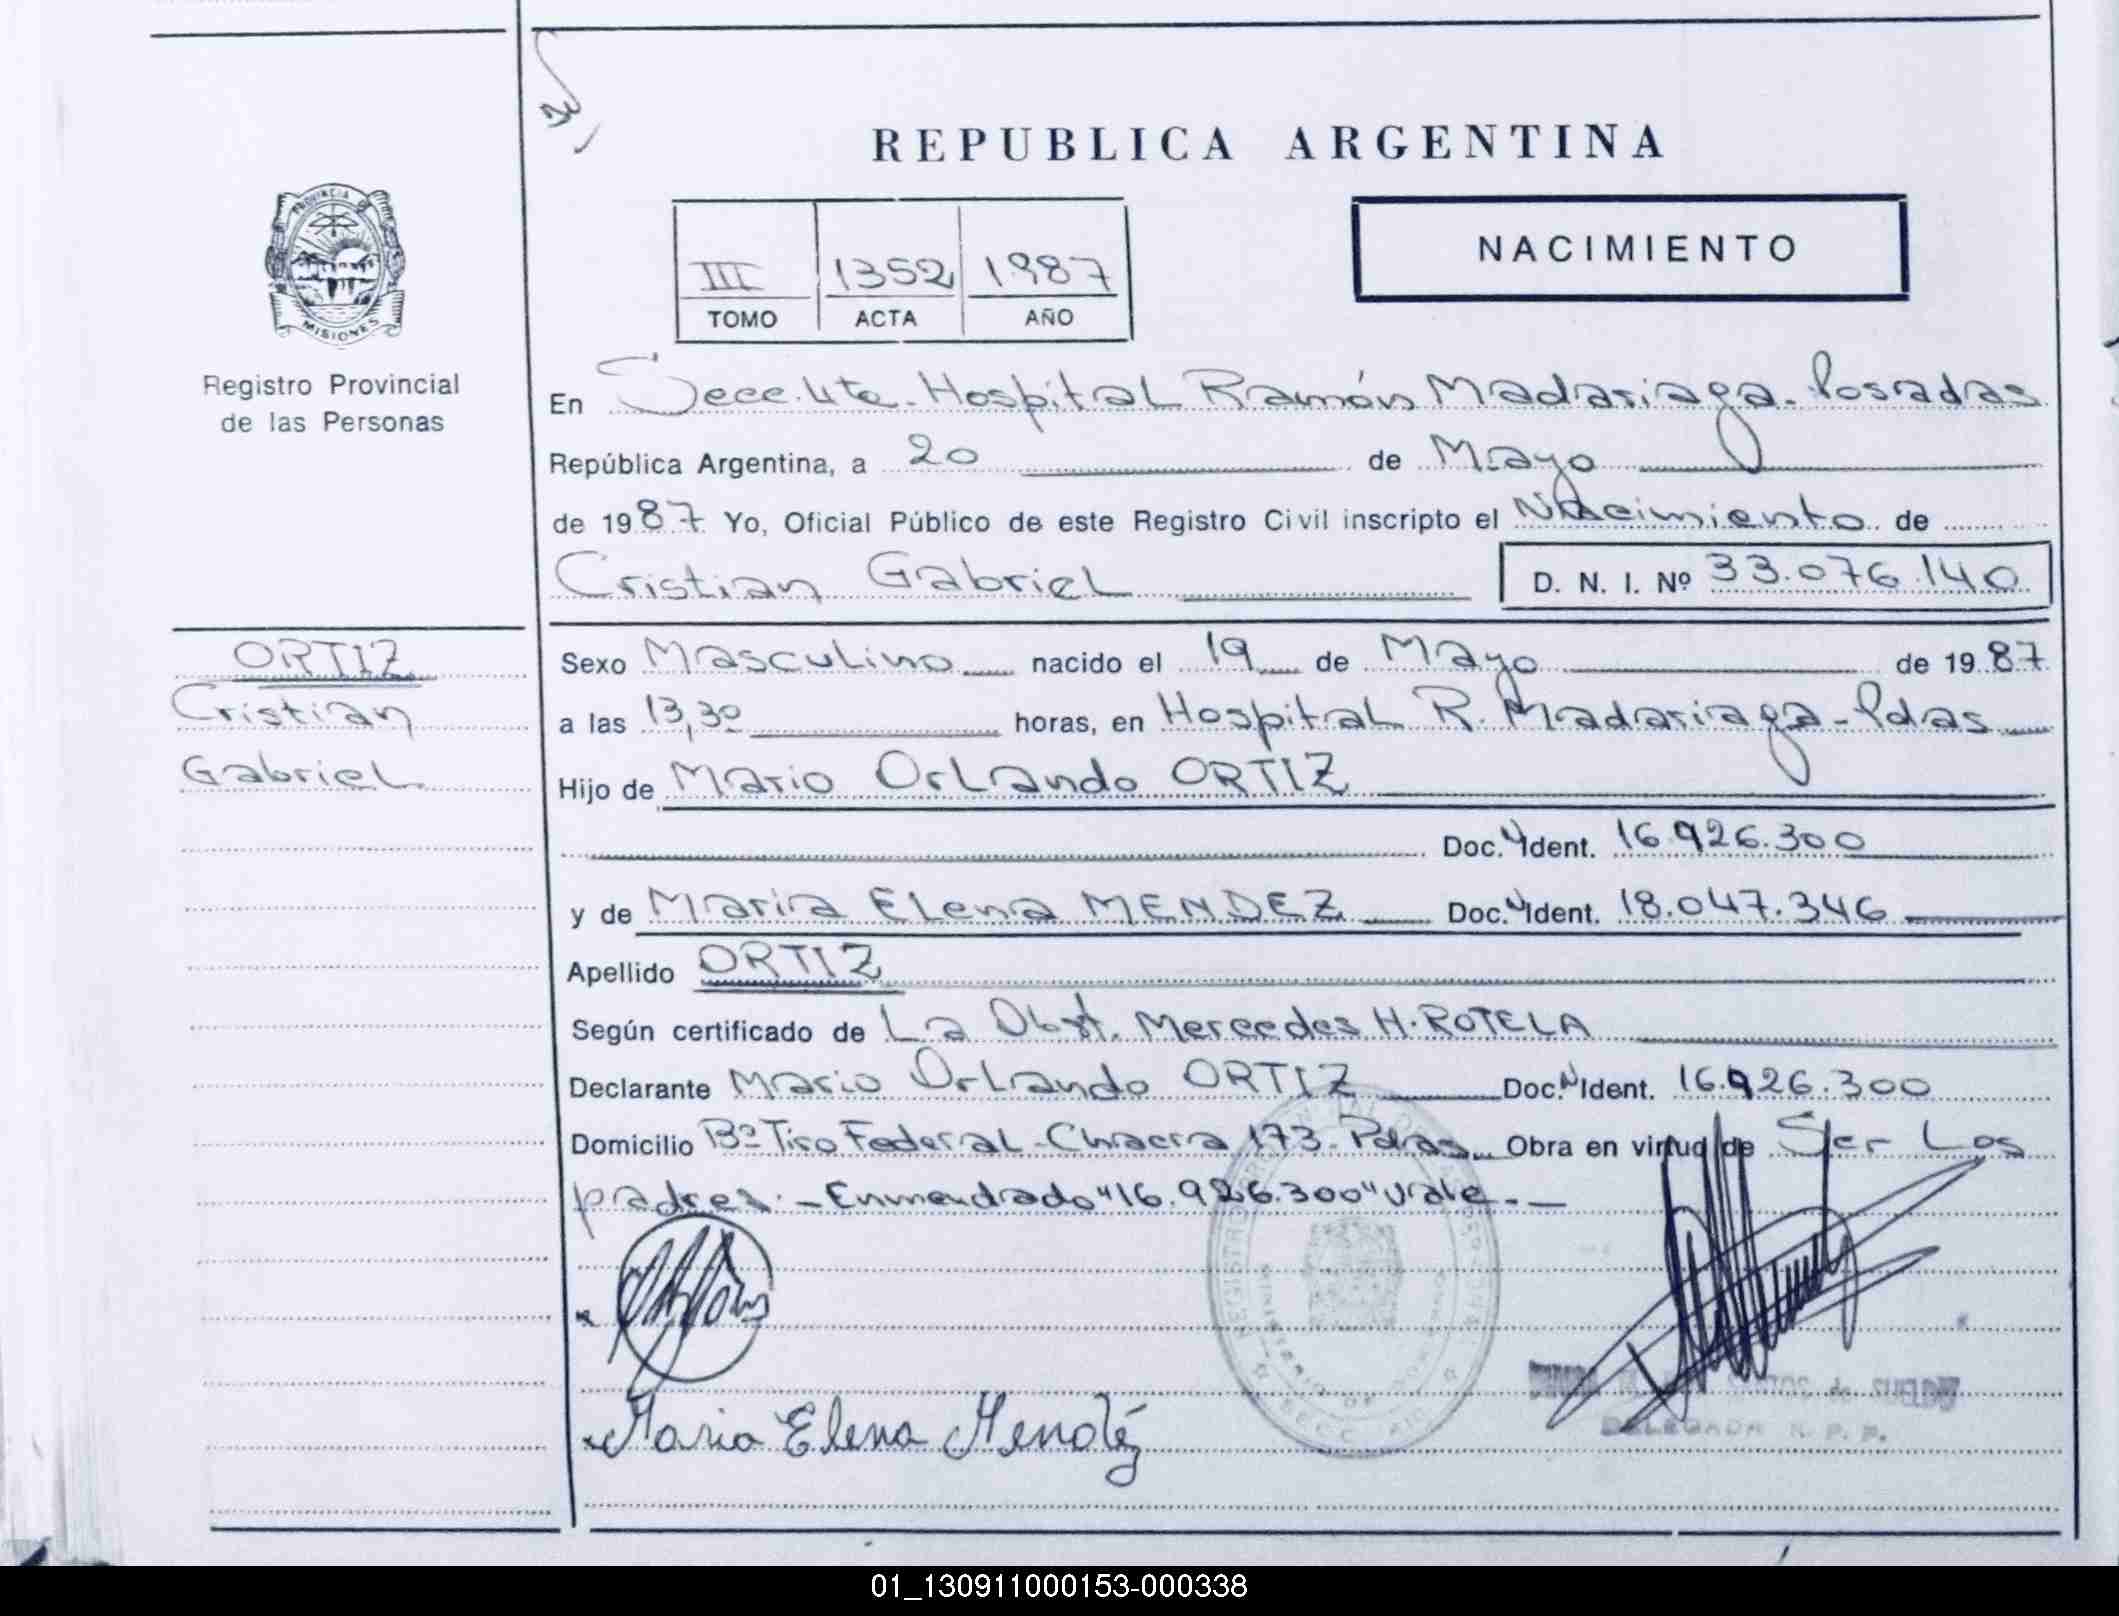 REPUBLICA ARGENTINA
NACIMIENTO
III 1352 1987
TOMO ACTA AÑO
PROVINCIA DE
MISIONES
Registro Provincial
de las Personas
En Secc. 4ta. Hospital Ramón Madariaga - Posadas
República Argentina, a 20 de Mayo
de 1987 Yo, Oficial Público de este Registro Civil inscripto el Nacimiento de
Cristian Gabriel D. N. I. Nº 33.076.140
ORTIZ
Cristian
Gabriel
Sexo Masculino nacido el 19 de Mayo de 1987
a las 13,30 horas, en Hospital R. Madariaga - Pdas
Hijo de Mario Orlando ORTIZ
Doc. N Ident. 16.926.300
y de Maria Elena MENDEZ Doc. N Ident. 18.047.346
Apellido ORTIZ
Según certificado de La Obst. Mercedes H. ROTELA
Declarante Mario Orlando ORTIZ Doc. N Ident. 16.926.300
Domicilio Bº Tiro Federal - Chacra 173 - Pdas Obra en virtud de Ser Los
padres. - Enmendado "16.926.300" vale. -
Maria Elena Mendéz
DELEGADA R. P. P.
01_130911000153-000338